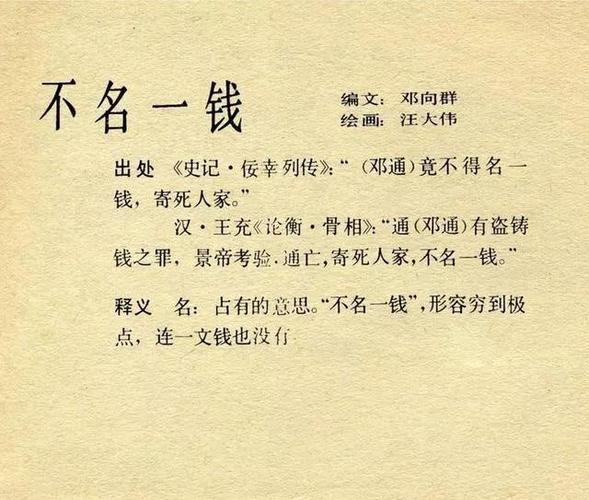 不名一钱
编文：邓向群
绘画：汪大伟
出处 《史记·佞幸列传》：“（邓通）竟不得名一
钱，寄死人家。”
汉·王充《论衡·骨相》：“通（邓通）有盗铸
钱之罪，景帝考验．通亡，寄死人家，不名一钱。”
释义 名：占有的意思。“不名一钱”，形容穷到极
点，连一文钱也没有